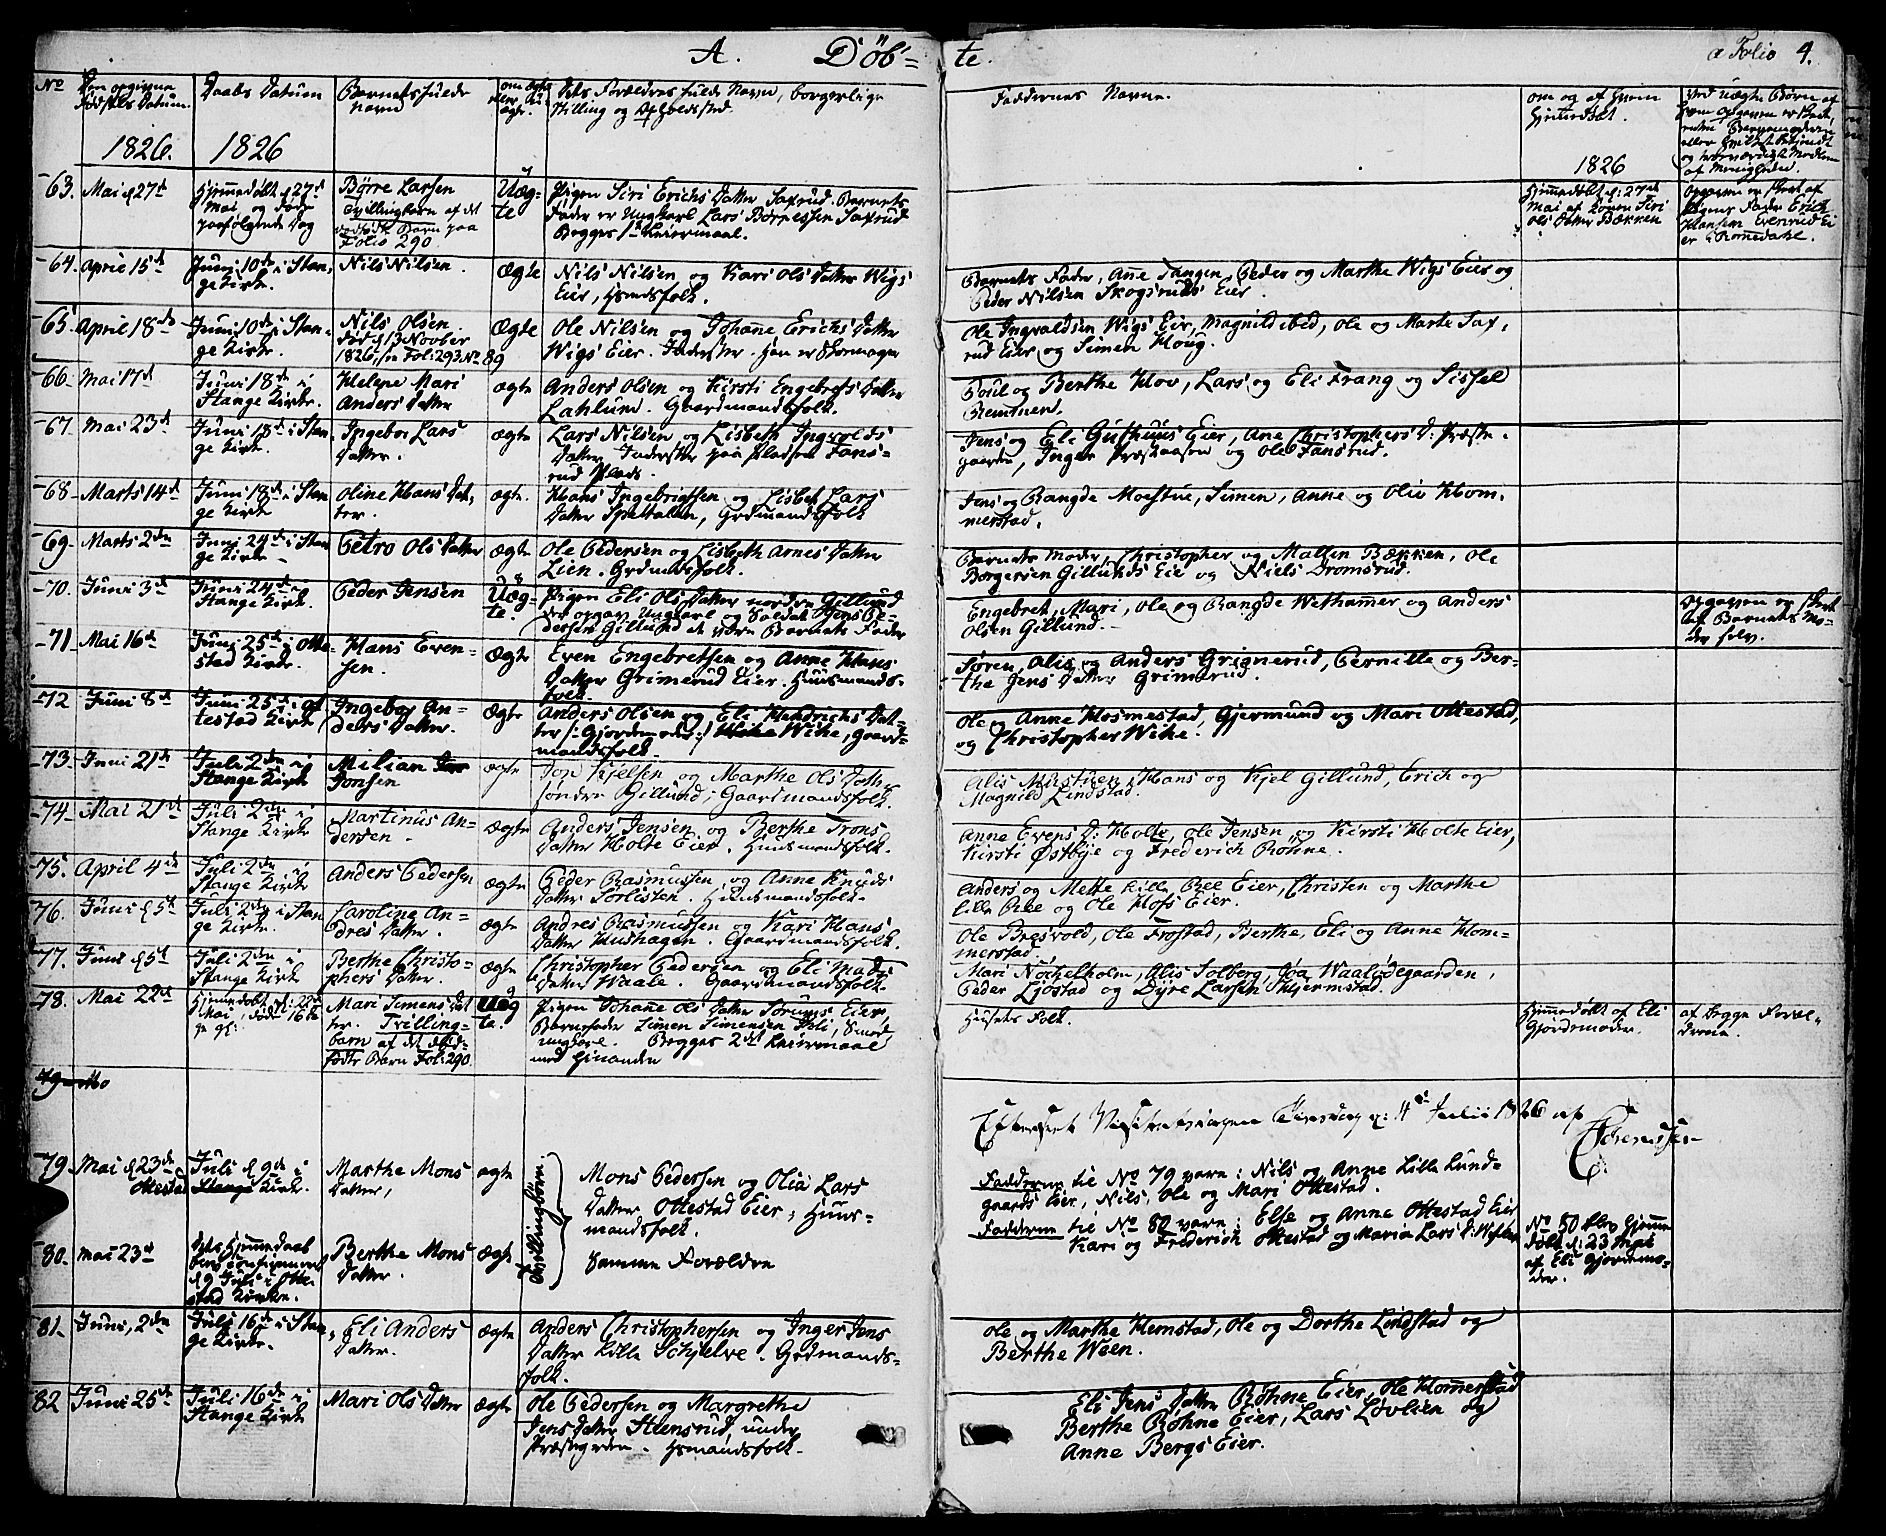 A. Döb-
te.
a Folio 4.
No
Den opgivne Fødsels Datum.
Daabs Datum
Barnets fulde Navn
om ægte eller uægte.
Dets Forældres fulde Navn, borgerlige Stilling og Opholdssted.
Faddernes Navne.
om og af hvem hjemmedøbt.
1826.
1826
1826
63. Mai d 27d
Hjemmedøbt d 27d
Mai og døde
paafølgende Dag
Børre Larsen
Tvillingbarn af det
dødfødte Barn paa
Folio 290
Uæg-
te
Pigen Siri Erichs Datter Saxrud. Barnets
Fader er Ungkarl Lars Børresen Saxrud
Begges 1ste Leiermaal.
Hjemmedøbt d: 27de
Mai af Konen Siri
Ols Datter Bækken
Opgaven er skeet af
Pigens Fader Erich
Hansen Evenrud Ei
er i Romedahl.
64. April 15d
Juni 10de i Stan-
ge Kirke.
Nils Nilsen.
Ægte
Nils Nilsen og Kari Ols Datter Wigs
Eier, Huusmandsfolk.
Barnets Fader, Ane Tangen, Peder og Marthe Wigs Eier og
Peder Nilsen Skogsruds Eier.
65. April 18de
Juni 10de i Stan-
ge Kirke.
Nils Olsen
død d 13 Novber
1826 se Fol: 293 No 89
Ægte
Ole Nilsen og Johane Erichs Datter
Wigs Eier. Inderster. Han er Skomager
Ole Ingvaldsen Wigs Eier, Magnild ibid, Ole og Marte Sax-
rud Eier og Simen Houg.
66. Mai 17d
Juni 18de i
Stange Kirke.
Helene Mari
Anders Datter
ægte
Anders Olsen og Kirsti Engebrets Datter
Lahlum. Gaardmandsfolk.
Poul og Berthe Hov, Lars og Eli Frang og Sissel
Remmen.
67. Mai 23d
Juni 18d i Stan-
ge Kirke.
Ingebor Lars
Datter.
ægte
Lars Nilsen og Lisbeth Ingvolds
Datter Inderster paa Pladsen Fons-
rud Plads.
Jens og Eli Guthuus Eier, Ane Christophers D: Præste-
gaarden, Inger Præstaasen og Ole Fansrud.
68. Marts 14d
Juni 18de i Stan
ge Kirke
Oline Hans Dat-
ter.
ægte.
Hans Ingebrigtsen og Lisbet Lars
Datter Spettalen, Grdmandsfolk
Jens og Rangde Moestue, Simen, Anne og Oliv Hom-
merstad.
69. Marts 2den
Juni 24de i Stan
ge Kirke.
Petro Ols Datter
ægte
Ole Pedersen og Lisbeth Arnes Datter
Lien. Grdmandsfolk.
Barnets Moder, Christopher og Mallin Bækken, Ole
Borgersen Gillunds Eie og Niels Dromsrud.
70. Juni 3d
Juni 24de i
Stange Kirke.
Peder Jensen
Uæg-
te.
Pigen Eli Ols Datter nordre Gillund
der opgav Ungkarl og Soldat Jens Pe-
dersen Gillund at være Barnets Fader
Engebret, Mari, Ole og Rangde Wethammer og Anders
Olsen Gillund.
Opgaven er skeet
af Barnets Mo-
der selv.
71 Mai 16d
Juni 25de i Otte-
stad Kirke.
Hans Even-
sen.
Ægte
Even Engebretsen og Anne Hans
Datter Grimerud Eier. Huusmands-
folk.
Søren, Alis og Anders Grignerud, Pernille og Ber-
the Jens Datter Grimerud.
72 Juni 8d
Juni 25de i Ot
testad Kirke
Ingebor An-
ders Datter.
Ægte
Anders Olsen og Eli Hendrichs Dat-
ter /: Gjordemoder :/ Wihe, Gaard-
mandsfolk.
Ole og Anne Hosmestad, Gjermund og Mari Ottestad,
og Christopher Wihe.
73. Juni 21d
Juli 2den i
Stange Kirke
Milian
Jonsen
ægte
Jon Kjelsen og Marthe Ols Datter
søndre Gillund; Gaardmandsfolk.
Alis Mostuen, Hans og Kjel Gillund, Erich og
Magnild Lindstad.
74. Mai 21d
Juli 2den i
Stange Kirke
Martinus An-
dersen.
ægte
Anders Jensen og Berthe Trons
Datter Holte Eier. Huusmandsfolk.
Anne Evens D: Holte, Ole Jensen og Kirsti Holte Eier,
Kirsti Østbye og Frederich Røhne.
75. April 4de
Juli 2den i
Stange Kirke
Anders Pedersen
ægte
Peder Rasmussen og Anne Knuds
Datter Sørlisten. Huusmandsfolk.
Anders og Mette Lille Ree Eier, Christen og Marthe
Lille Ree og Ole Hofs Eier.
76. Juni d 5d
Juli 2den i Stan
ge Kirke.
Caroline An-
dres Datter.
ægte
Andres Rasmussen og Kari Hans
Datter Hushagen. Gaardmandsfolk.
Ole Bresvold, Ole Frostad, Berthe, Eli og Anne Hom-
merstad.
77. Juni d 5d
Juli 2den i
Stange Kirke
Berthe Christo-
phers Datter.
ægte
Christopher Pedersen og Eli Mads
Datter Waale. Gaardmandsfolk.
Mari Nøckelholm, Alis Solberg, Goa Waalødegaarden,
Peder Ljøstad og Dyre Larsen Skjermstad.
78. Mai 22d
Mari Simens Dat
ter. Trilling-
barn af det død-
fødte Barn Fol: 290.
Uæg
te.
Pigen Johane Ols Datter Sørums Eier,
Barnefader Simen Simensen Ihli, Smed
ungkarl. Begges 2det Leiermaal
med hinanden
Husets Folk.
Hjemmedøbt af Eli
Gjordemoder.
af begge Foræl-
drene.
Efterseet Visitatsdagen Tirsdag d: 4de Julii 1826 af
79. Mai d 23de
Ottestad
Juli d 9de i
Stange Kirke.
Marthe Mons
Datter,
ægte
Tvillingbörn.
Mons Pedersen og Olia Lars
Datter Ottestad Eier, Huus-
mandsfolk.
Fadderne til No 79 vare: Nils og Anne Lille Lund-
gaards Eier, Nils, Ole og Mari Ottestad.
Fadderne til No 80 vare: Else og Anne Ottestad Eier
Kari og Frederich Ottestad og Maria Lars D:
No 80 blev hjemme
døbt d: 23 Mai
af Eli Gjordemo-
der.
80. Mai 23d
Dets Hjemmedaab
blev confirmeret
d 9 Juli i Otte
stad Kirke.
Berthe Mons
Datter.
Ægte
Samme Forældre
81. Juni, 2den
Juli 16de i Stan
ge Kirke.
Eli Anders
Datter.
Ægte
Anders Christophersen og Inger Jens
Datter Lille Schjelve. Grdmands-
folk.
Ole og Marthe Hemstad, Ole og Dorthe Lindstad og
Berthe Ween.
82 Juni 25de
Juli 16de i
Stange Kirke
Mari Ols Datter
ægte
Ole Pedersen og Margrethe
Jens Datter Steensrud, under
Præstegrden. Hsmandsfolk.
Eli Jens Datter Røhne Eier, Ole Homerstad
Berthe Røhne Eier, Lars Løvlien og
Anne Bergs Eier.